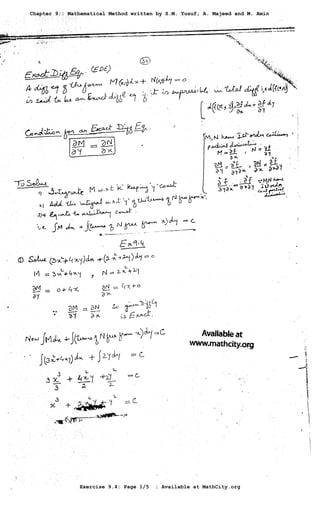 Chapter 9:: Mathematical Method written by S.M. Yusuf, A. Majeed and M. Amin
Exact Diff Eq. (EDE)
A diff eq of the form M(x,y)dx + N(x,y)dy = 0
is said to be an Exact diff eq if it is expressible in total diff i.e df(x,y)
df(x,y) = ∂f/∂x dx + ∂f/∂y dy
Condition for an Exact Diff Eq.
∂M/∂y = ∂N/∂x
M,N have 1st order continuous
partial derivatives
M = ∂f/∂x , N = ∂f/∂y
To Solve
1) Integrate M w.r.t x keeping y const
2) Add the integral w.r.t 'y' of the terms of N free from x
3) Equate to arbitrary const.
i.e ∫M dx + ∫(terms of N free from x)dy = C
Ex 9.4
① Solve (3x²+4xy)dx + (2x²+2y)dy = 0
M = 3x²+4xy , N = 2x²+2y
∂M/∂y = 0+4x ∂N/∂x = 4x+0
∵ ∂M/∂y = ∂N/∂x So given Diff Eq is Exact.
Now ∫M dx + ∫(terms of N free from x)dy = C
∫(3x²+4xy)dx + ∫2y dy = C
3x³/3 + 4x²y/2 + 2y²/2 = C
x³ + 2x²y + y² = C
Available at
www.mathcity.org
Exercise 9.4: Page 1/5 : Available at MathCity.org